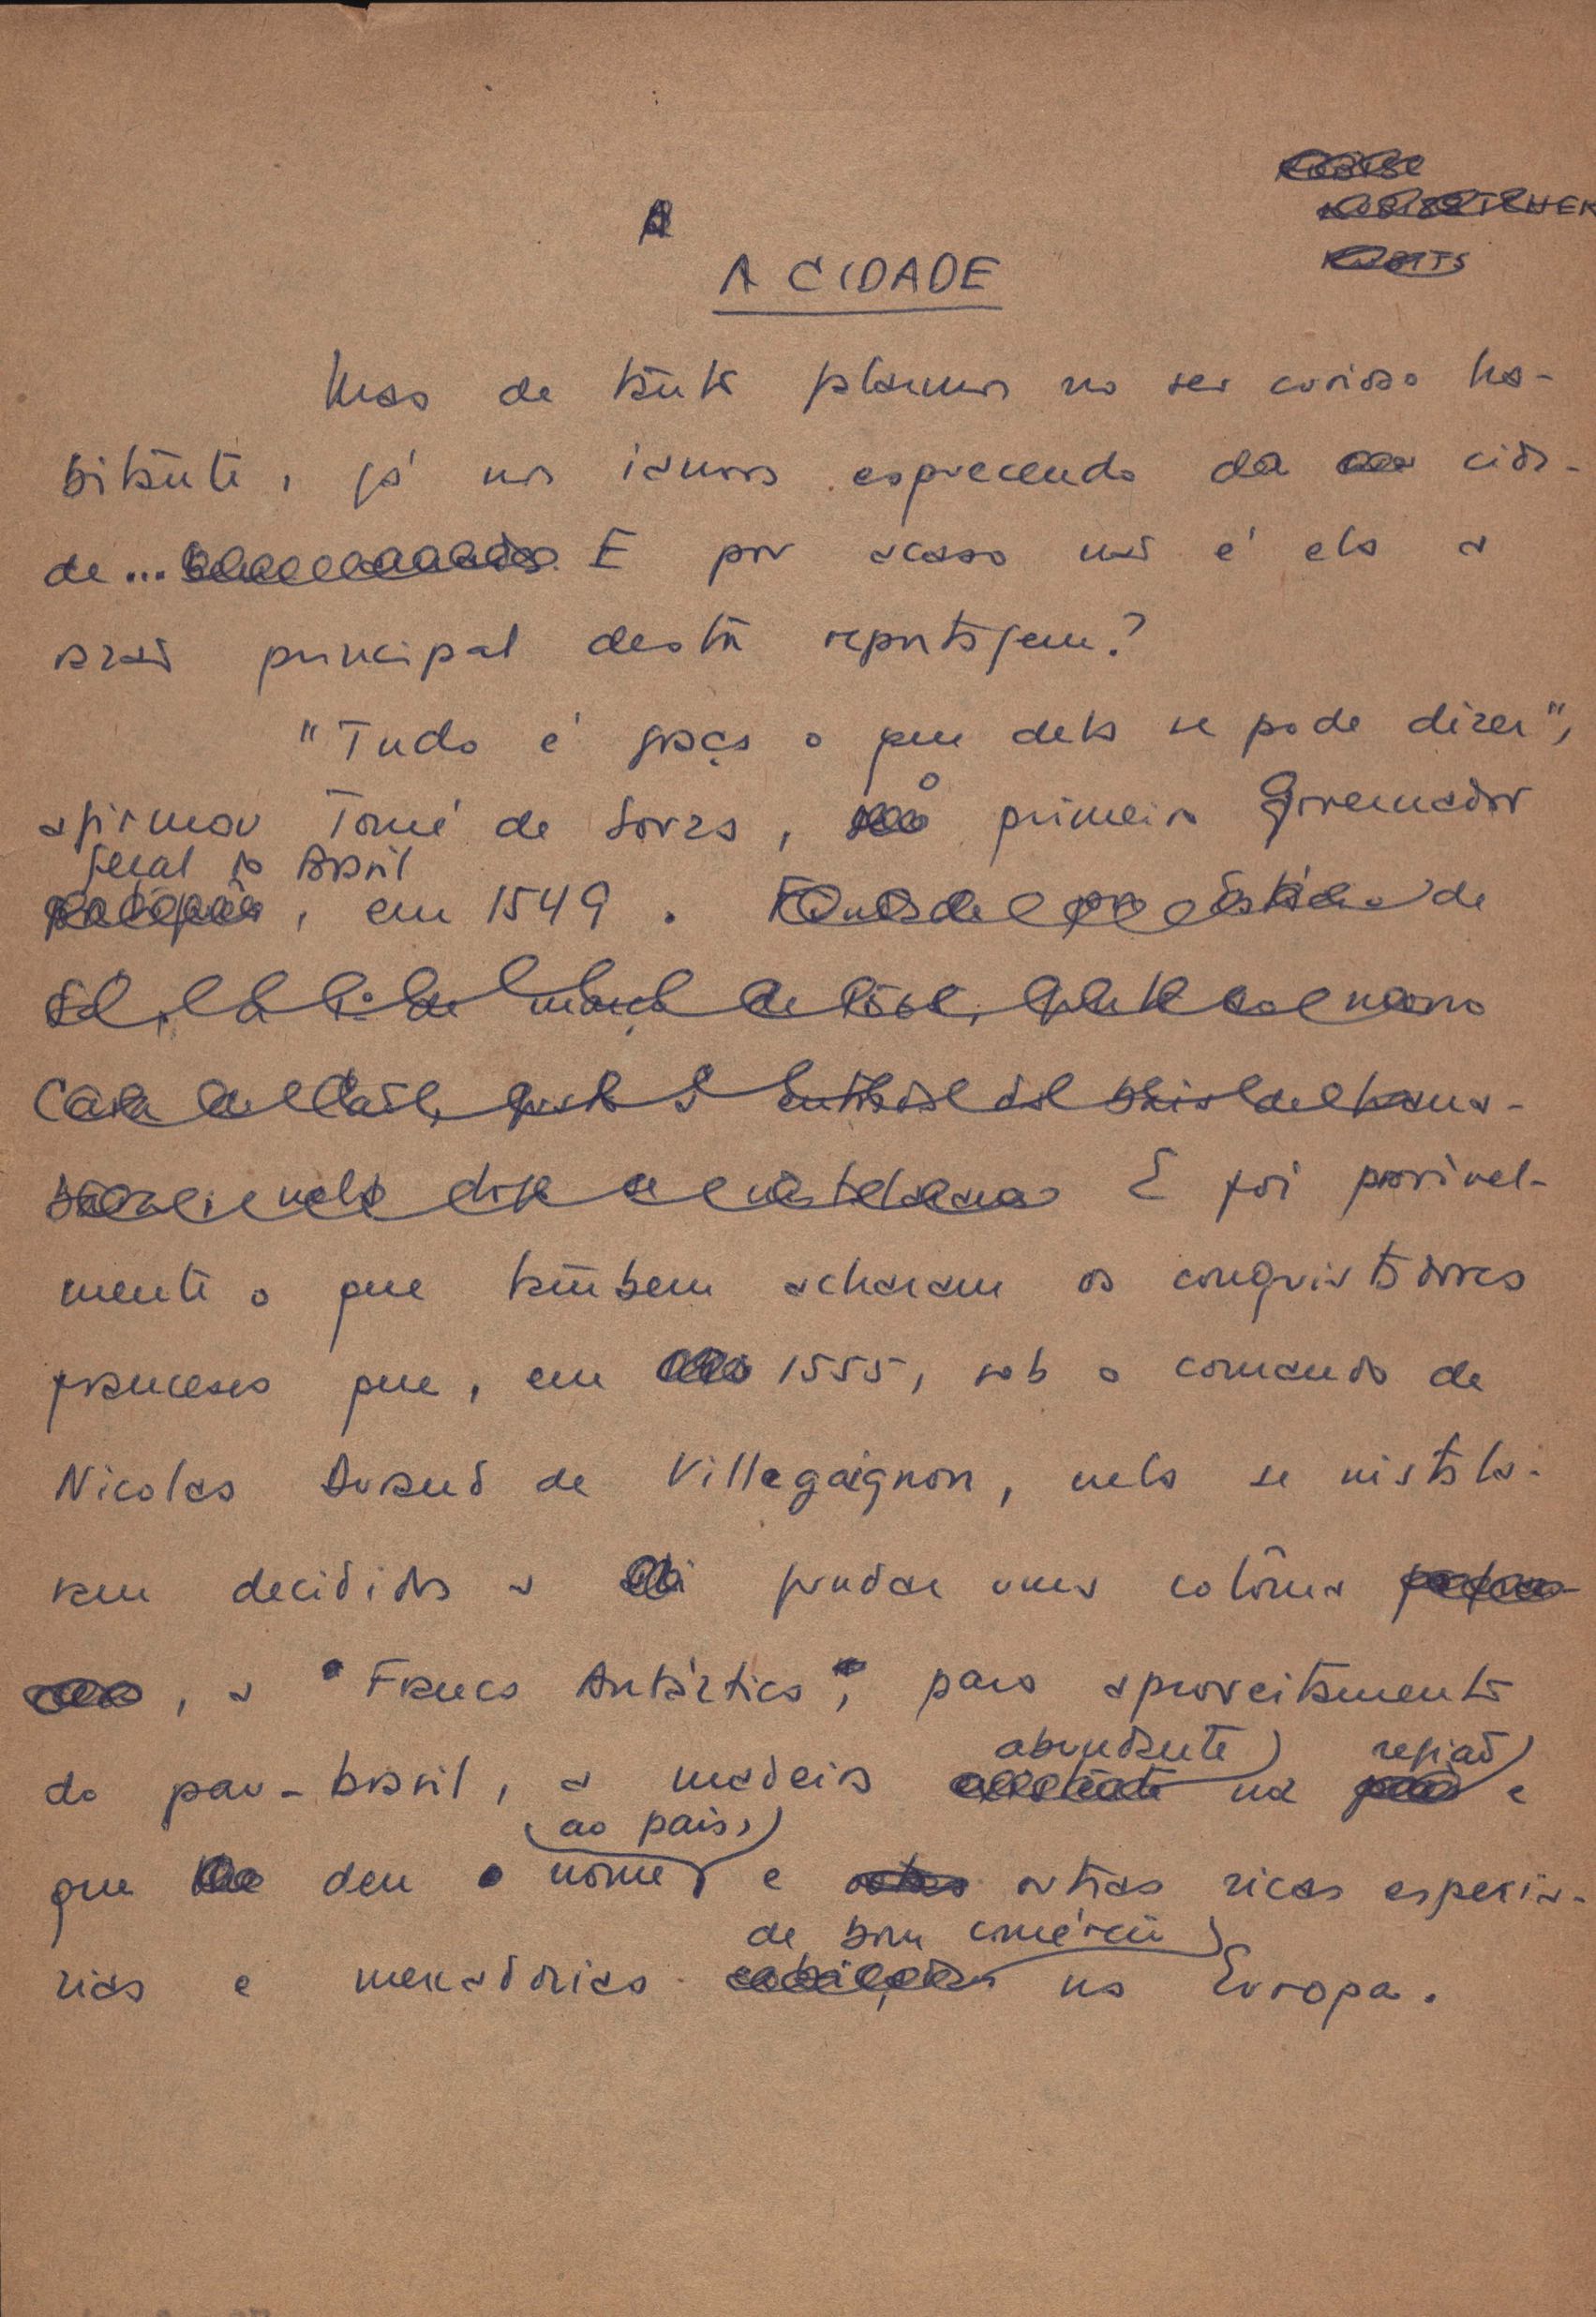 A CIDADE
Mas de tanto falarmos no seu curioso ha-
bitante, já nos íamos esquecendo da cida-
de... E por acaso não é ela a
razão principal desta reportagem?
"Tudo é graça o que dela se pode dizer",
afirmou Tomé de Souza, o primeiro Governador
geral do Brasil
, em 1549. de
Cara de Cão,
E foi provavel-
mente o que também acharam os conquistadores
franceses que, em 1555, sob o comando de
Nicolas Durand de Villegaignon, nela se instala-
ram decididos a fundar uma colônia
, a "França Antártica", para aproveitamento
abundante região
do pau-brasil, a madeira na e
ao país,
que deu nome e outras ricas especia-
de bom comércio
rias e mercadorias na Europa.